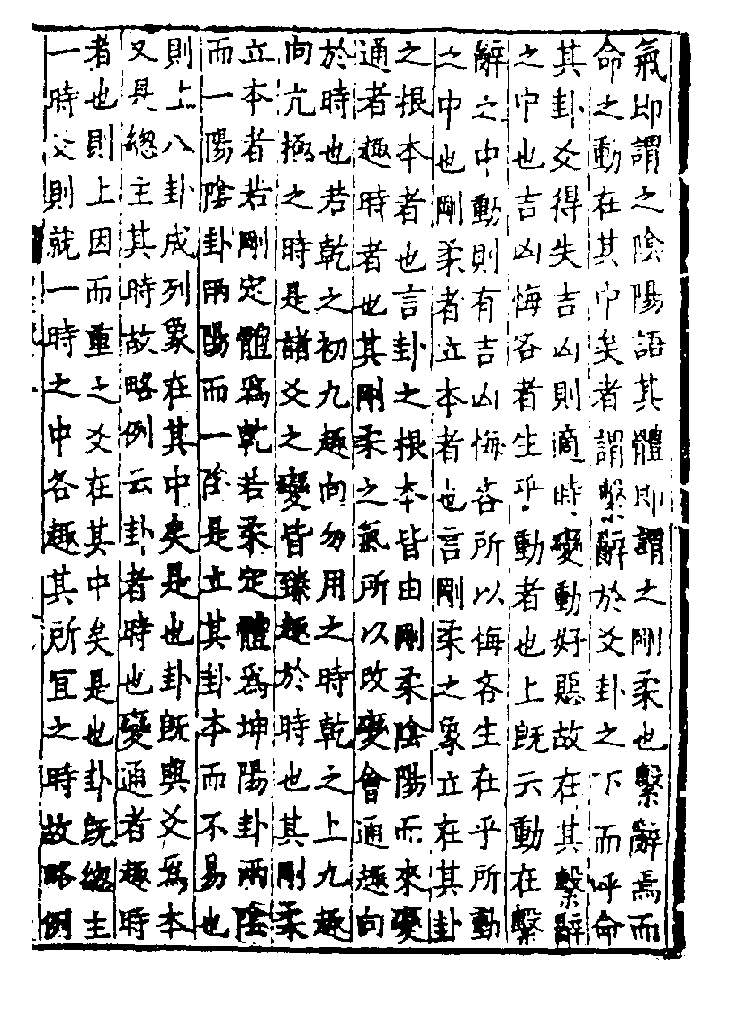 氣即謂之陰陽語其體即謂之剛柔也繫辭焉而
命之動在其中矣者謂繫辭於爻卦之下而呼命
其卦爻得失吉凶則適時變動好惡故在其繫辭
之中也吉凶悔吝者生乎動者也上既云動在繫
辭之中動則有吉凶悔吝所以悔吝生在乎所動
之中也剛柔者立本者也言剛柔之象立在其卦
之根本者也言卦之根本皆由剛柔陰陽而來變
通者趣時者也其剛柔之氣所以改變會通趣向
於時也若乾之初九趣向勿用之時乾之上九趣
向亢極之時是諸爻之變皆臻趣於時也其剛柔
立本者若剛定體為乾若柔定體為坤陽卦兩陰
而一陽陰卦兩陽而一陰是立其卦本而不易也
則上八卦成列象在其中矣是也卦既與爻為本
又具緫主其時故略例云卦者時也變通者趣時
者也則上因而重之爻在其中矣是也卦既緫主
一時爻則就一時之中各趣其所宜之時故略例